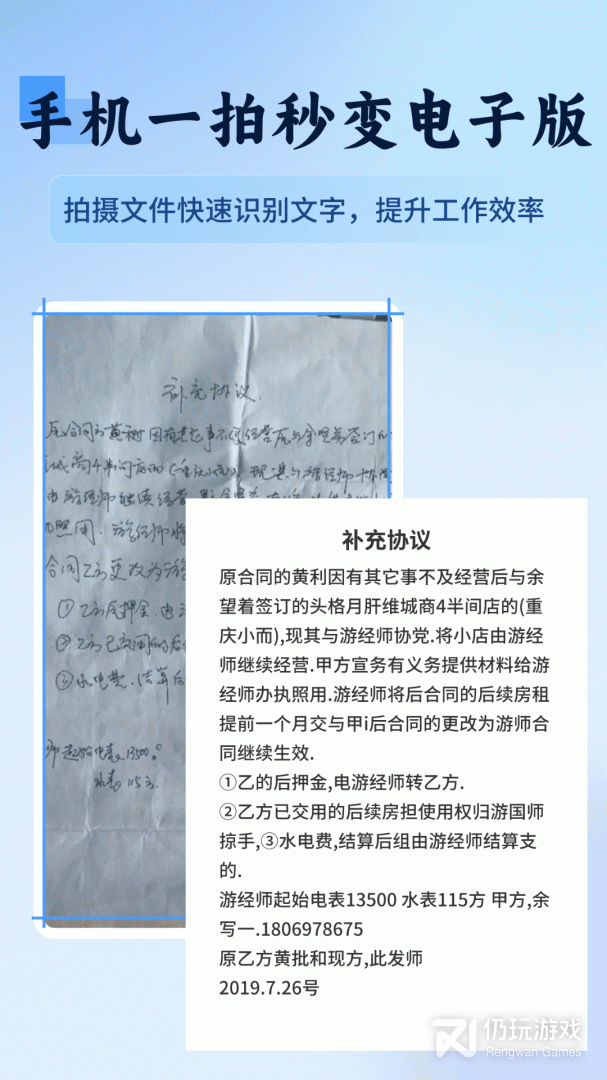 手机一拍秒变电子版
拍摄文件快速识别文字，提升工作效率
补充协议
水电费.结算后
水表 115方.
补充协议
原合同的黄利因有其它事不及经营后与余
望着签订的头格月肝维城商4半间店的(重
庆小而),现其与游经师协党.将小店由游经
师继续经营.甲方宣务有义务提供材料给游
经师办执照用.游经师将后合同的后续房租
提前一个月交与甲i后合同的更改为游师合
同继续生效.
①乙的后押金,电游经师转乙方.
②乙方已交用的后续房担使用权归游国师
掠手,③水电费,结算后组由游经师结算支
的.
游经师起始电表13500 水表115方 甲方,余
写一.1806978675
原乙方黄批和现方,此发师
2019.7.26号
仍玩游戏
Rengwan Games